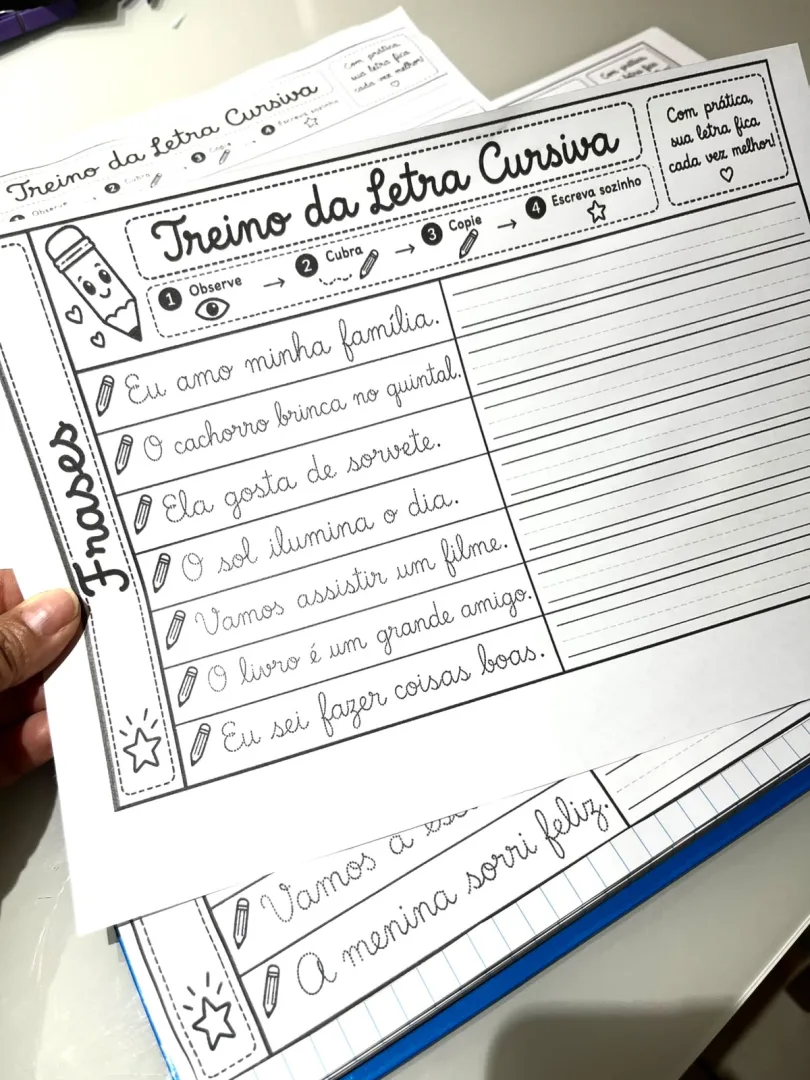 Treino da Letra Cursiva
Com prática,
sua letra fica
cada vez melhor!
1 Observe → 2 Cubra → 3 Copie → 4 Escreva sozinho
Frases
Eu amo minha família.
O cachorro brinca no quintal.
Ela gosta de sorvete.
O sol ilumina o dia.
Vamos assistir um filme.
O livro é um grande amigo.
Eu sei fazer coisas boas.
Treino da Letra Cursiva
Com prática,
sua letra fica
cada vez melhor!
1 Observe → 2 Cubra → 3 Copie → 4 Escreva sozinho
Vamos à
A menina sorri feliz.